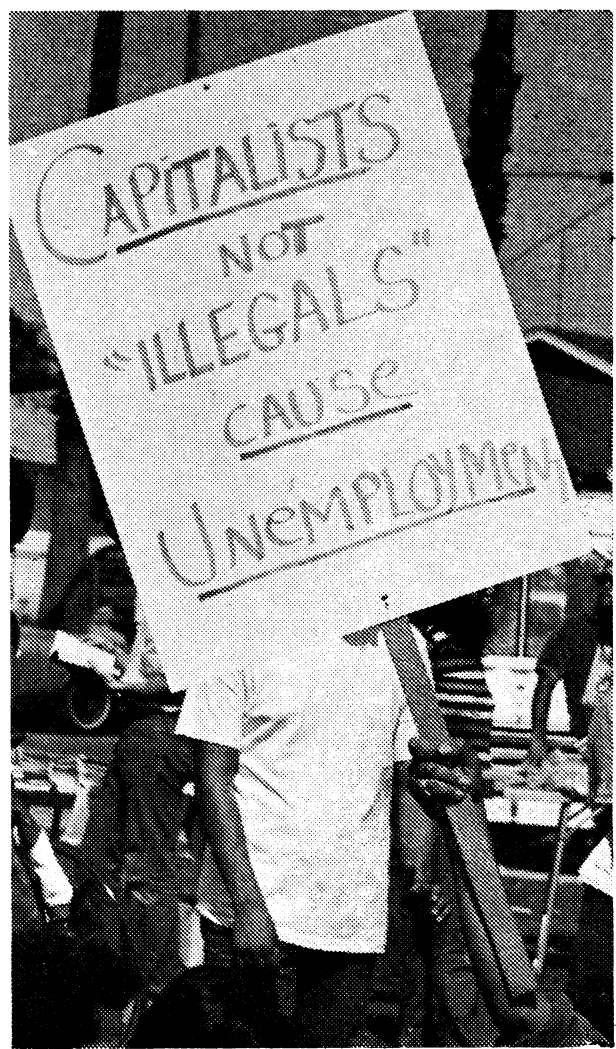 CAPITALISTS
NOT
"ILLEGALS"
CAUSE
UNEMPLOYMENT